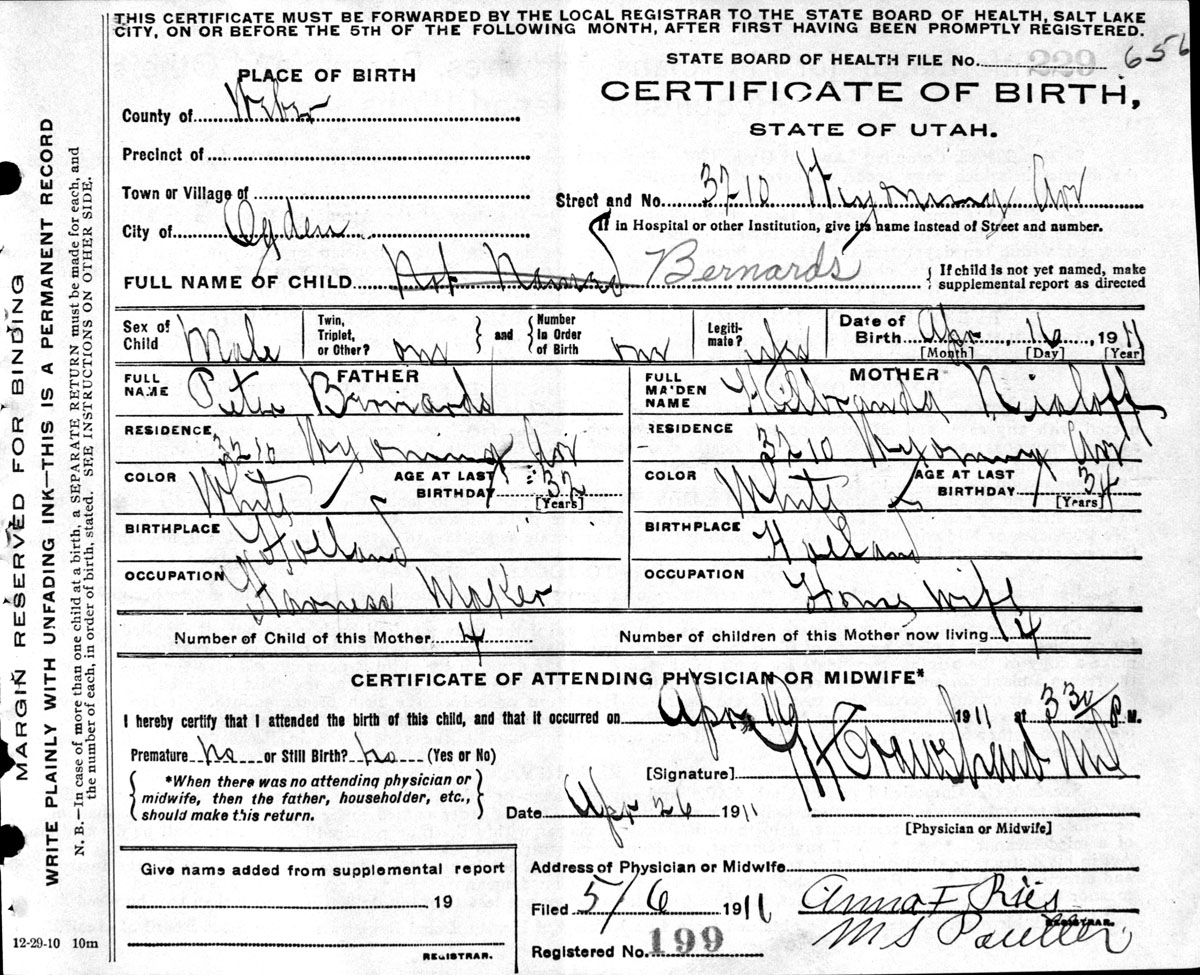 THIS CERTIFICATE MUST BE FORWARDED BY THE LOCAL REGISTRAR TO THE STATE BOARD OF HEALTH, SALT LAKE
CITY, ON OR BEFORE THE 5TH OF THE FOLLOWING MONTH, AFTER FIRST HAVING BEEN PROMPTLY REGISTERED.
STATE BOARD OF HEALTH FILE No. 229 656
PLACE OF BIRTH
CERTIFICATE OF BIRTH,
STATE OF UTAH.
County of Weber
Precinct of
Town or Village of
Street and No. 3210 Wyoming Av
City of Ogden
If in Hospital or other Institution, give its name instead of Street and number.
FULL NAME OF CHILD Not Named Bernards
If child is not yet named, make
supplemental report as directed
Sex of Child Male
Twin, Triplet, or Other? no and Number in Order of Birth no
Legiti-mate? yes
Date of Birth Apr 16 1911
[Month] [Day] [Year]
FATHER
FULL NAME Peter Bernards
MOTHER
FULL MAIDEN NAME
RESIDENCE 3210 Wyoming Av
RESIDENCE 3210 Wyoming Av
COLOR White AGE AT LAST BIRTHDAY 32 [Years]
COLOR White AGE AT LAST BIRTHDAY 34 [Years]
BIRTHPLACE Holland
BIRTHPLACE Holland
OCCUPATION Harness Maker
OCCUPATION House Wife
Number of Child of this Mother 4
Number of children of this Mother now living 4
CERTIFICATE OF ATTENDING PHYSICIAN OR MIDWIFE*
I hereby certify that I attended the birth of this child, and that it occurred on Apr 16 1911 at 3 30 P. M.
Premature no or Still Birth? no (Yes or No)
[Signature] MD
*When there was no attending physician or
midwife, then the father, householder, etc.,
should make this return.
Date Apr 26 1911
[Physician or Midwife]
Give name added from supplemental report
19
REGISTRAR.
Address of Physician or Midwife
Filed 5/6 1911 Anna F. Ries
REGISTRAR.
Registered No. 199 M S
12-29-10 10m
MARGIN RESERVED FOR BINDING
WRITE PLAINLY WITH UNFADING INK—THIS IS A PERMANENT RECORD
N. B.—In case of more than one child at a birth, a SEPARATE RETURN must be made for each, and
the number of each, in order of birth, stated. SEE INSTRUCTIONS ON OTHER SIDE.